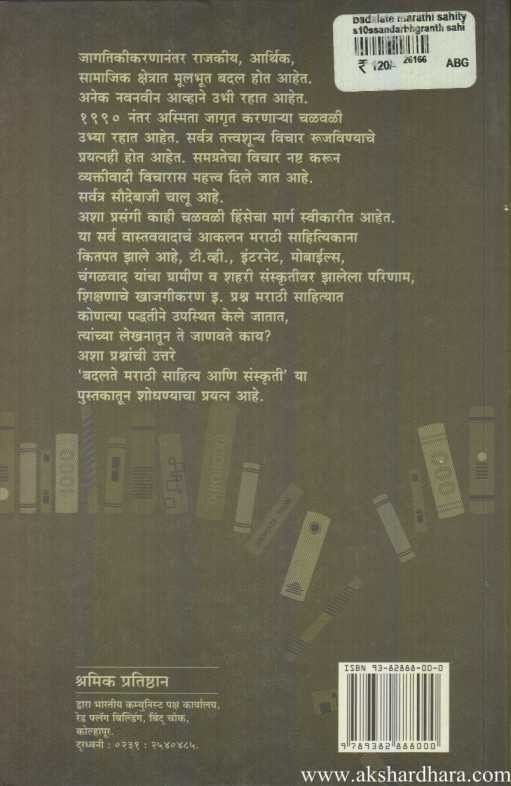 Badalate marathi sahity
s10ssandarbhgranth sahi
₹ 120/- 26166 ABG
जागतिकीकरणानंतर राजकीय, आर्थिक,
सामाजिक क्षेत्रात मूलभूत बदल होत आहेत.
अनेक नवनवीन आव्हाने उभी रहात आहेत.
१९९० नंतर अस्मिता जागृत करणाऱ्या चळवळी
उभ्या रहात आहेत. सर्वत्र तत्त्वशून्य विचार रूजविण्याचे
प्रयत्नही होत आहेत. समग्रतेचा विचार नष्ट करून
व्यक्तीवादी विचारास महत्त्व दिले जात आहे.
सर्वत्र सौदेबाजी चालू आहे.
अशा प्रसंगी काही चळवळी हिंसेचा मार्ग स्वीकारीत आहेत.
या सर्व वास्तववादाचं आकलन मराठी साहित्यिकाना
कितपत झाले आहे, टी.व्ही., इंटरनेट, मोबाईल्स,
चंगळवाद यांचा ग्रामीण व शहरी संस्कृतीवर झालेला परिणाम,
शिक्षणाचे खाजगीकरण इ. प्रश्न मराठी साहित्यात
कोणत्या पद्धतीने उपस्थित केले जातात,
त्यांच्या लेखनातून ते जाणवते काय?
अशा प्रश्नांची उत्तरे
‘बदलते मराठी साहित्य आणि संस्कृती’ या
पुस्तकातून शोधण्याचा प्रयत्न आहे.
1000
000
श्रमिक प्रतिष्ठान
द्वारा भारतीय कम्युनिस्ट पक्ष कार्यालय,
रेड फ्लॅग बिल्डिंग, बिंदू चौक,
कोल्हापूर.
दूरध्वनी : ०२३१ : २५४०४८५.
ISBN 93-82868-00-0
9 789382 868000
www.akshardhara.com